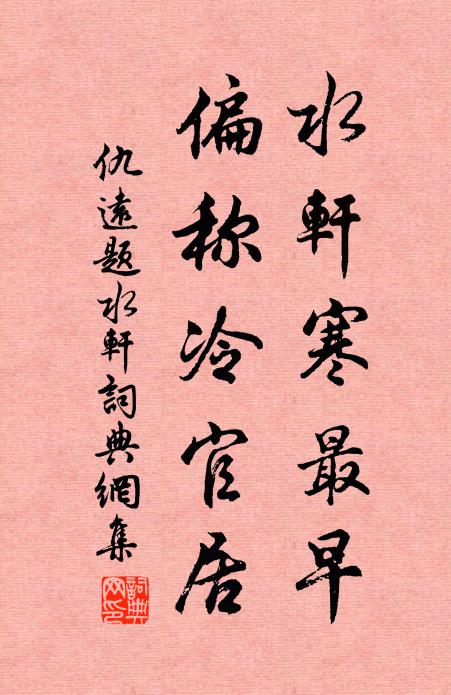 水軒寒最早
偏称冷官居
仇遠題水軒詞典網集
詞典網印